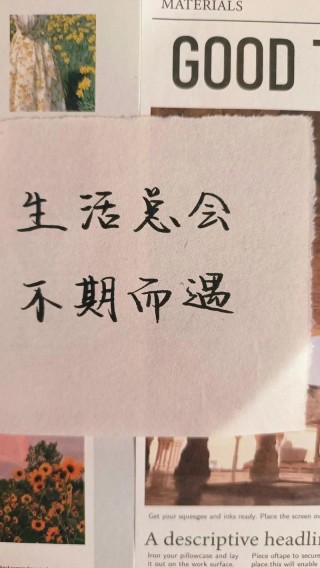 MATERIALS
GOOD
生活总会
不期而遇
Get your squeegee and inks ready. Place the screen
A descriptive headlin
Iron your pillowcase and lay
it out on the work surface.
Piece of tape to secure
place this will enable